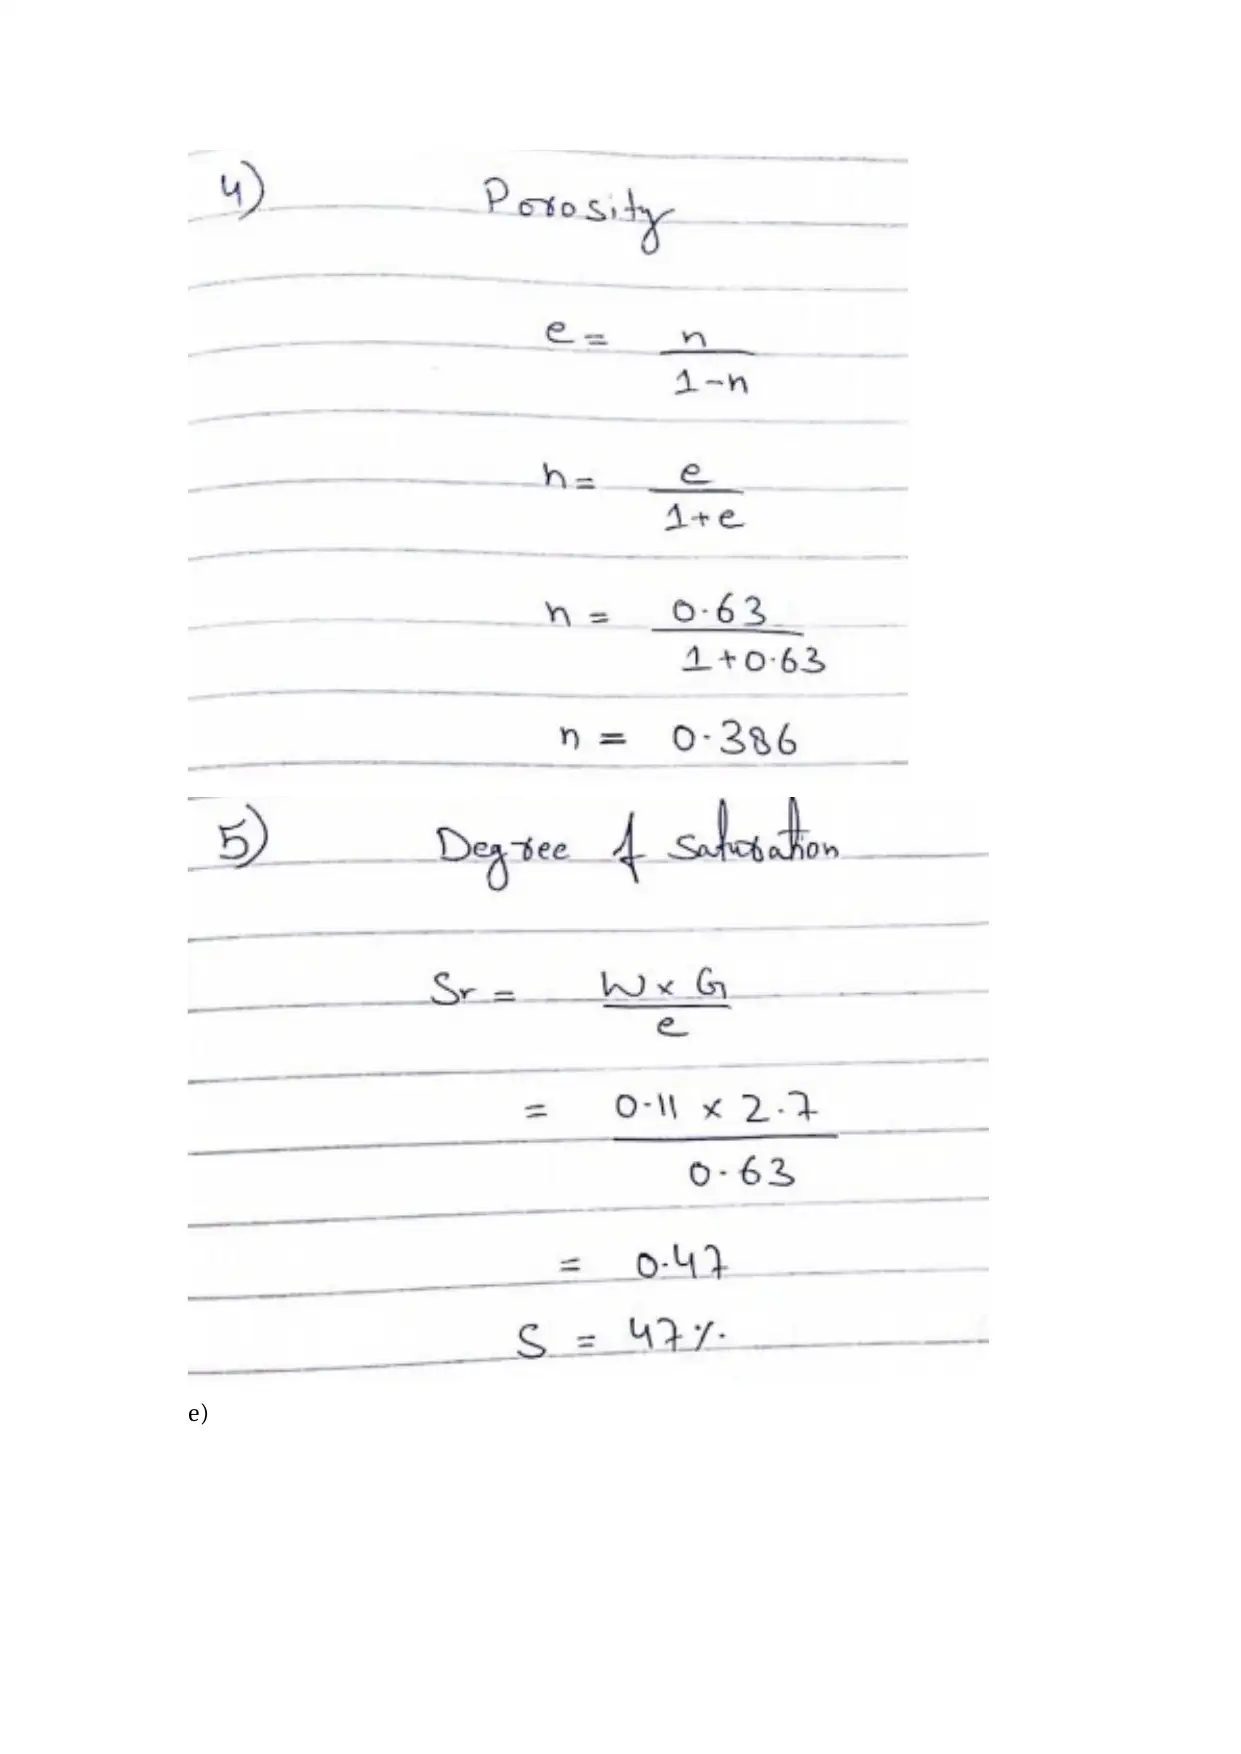 4) Porosity
e = n
1-n
n = e
1+e
n = 0.63
1+0.63
n = 0.386
5) Degree of saturation
Sr = W x G
e
= 0.11 x 2.7
0.63
= 0.47
S = 47%.
e)